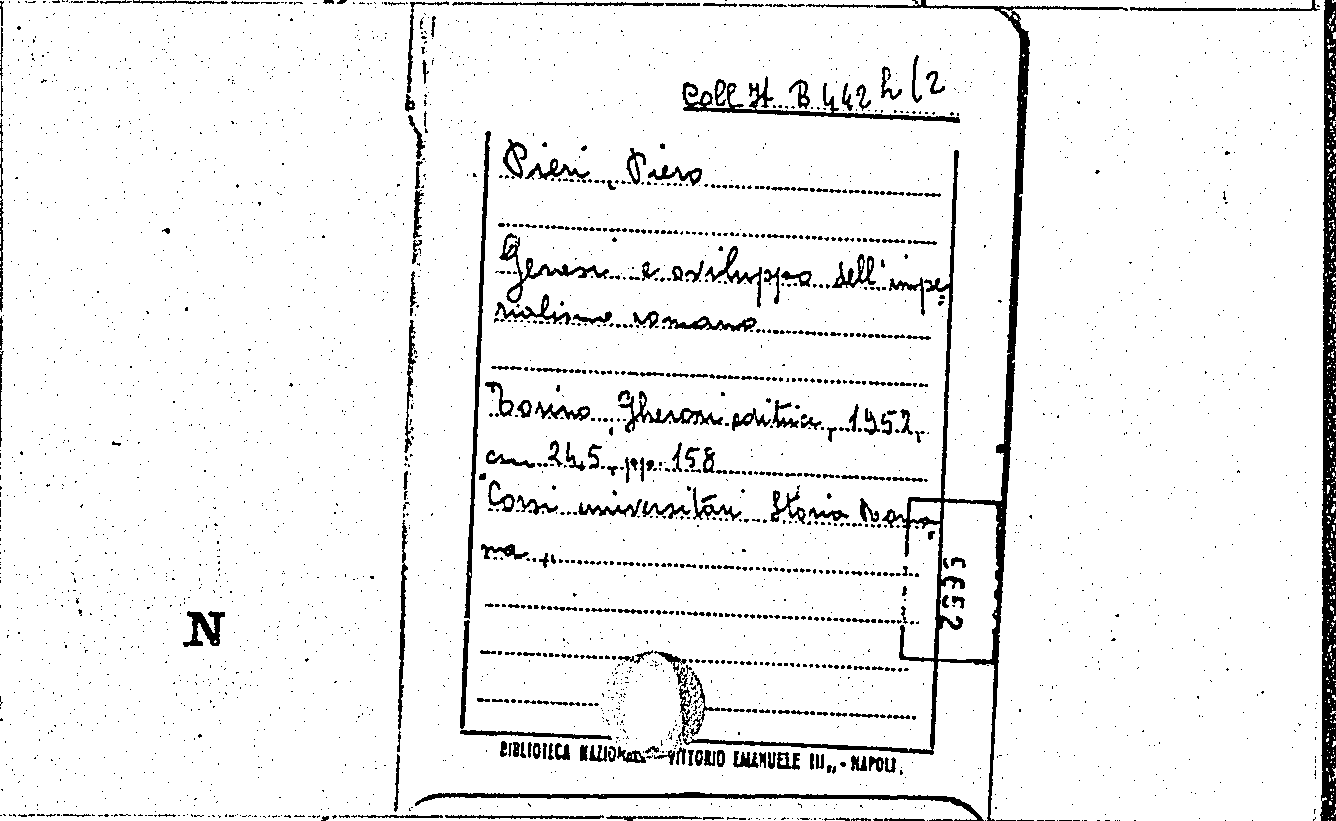 Coll It B 442 h/2
Pieri, Piero
Genesi e sviluppo dell'impe=
rialismo romano
Torino, Gheroni editrice, 1952,
cm 24,5, pp. 158
"Corsi universitari Storia Roma=
na „
N
BIBLIOTECA NAZIONALE VITTORIO EMANUELE III„ - NAPOLI.